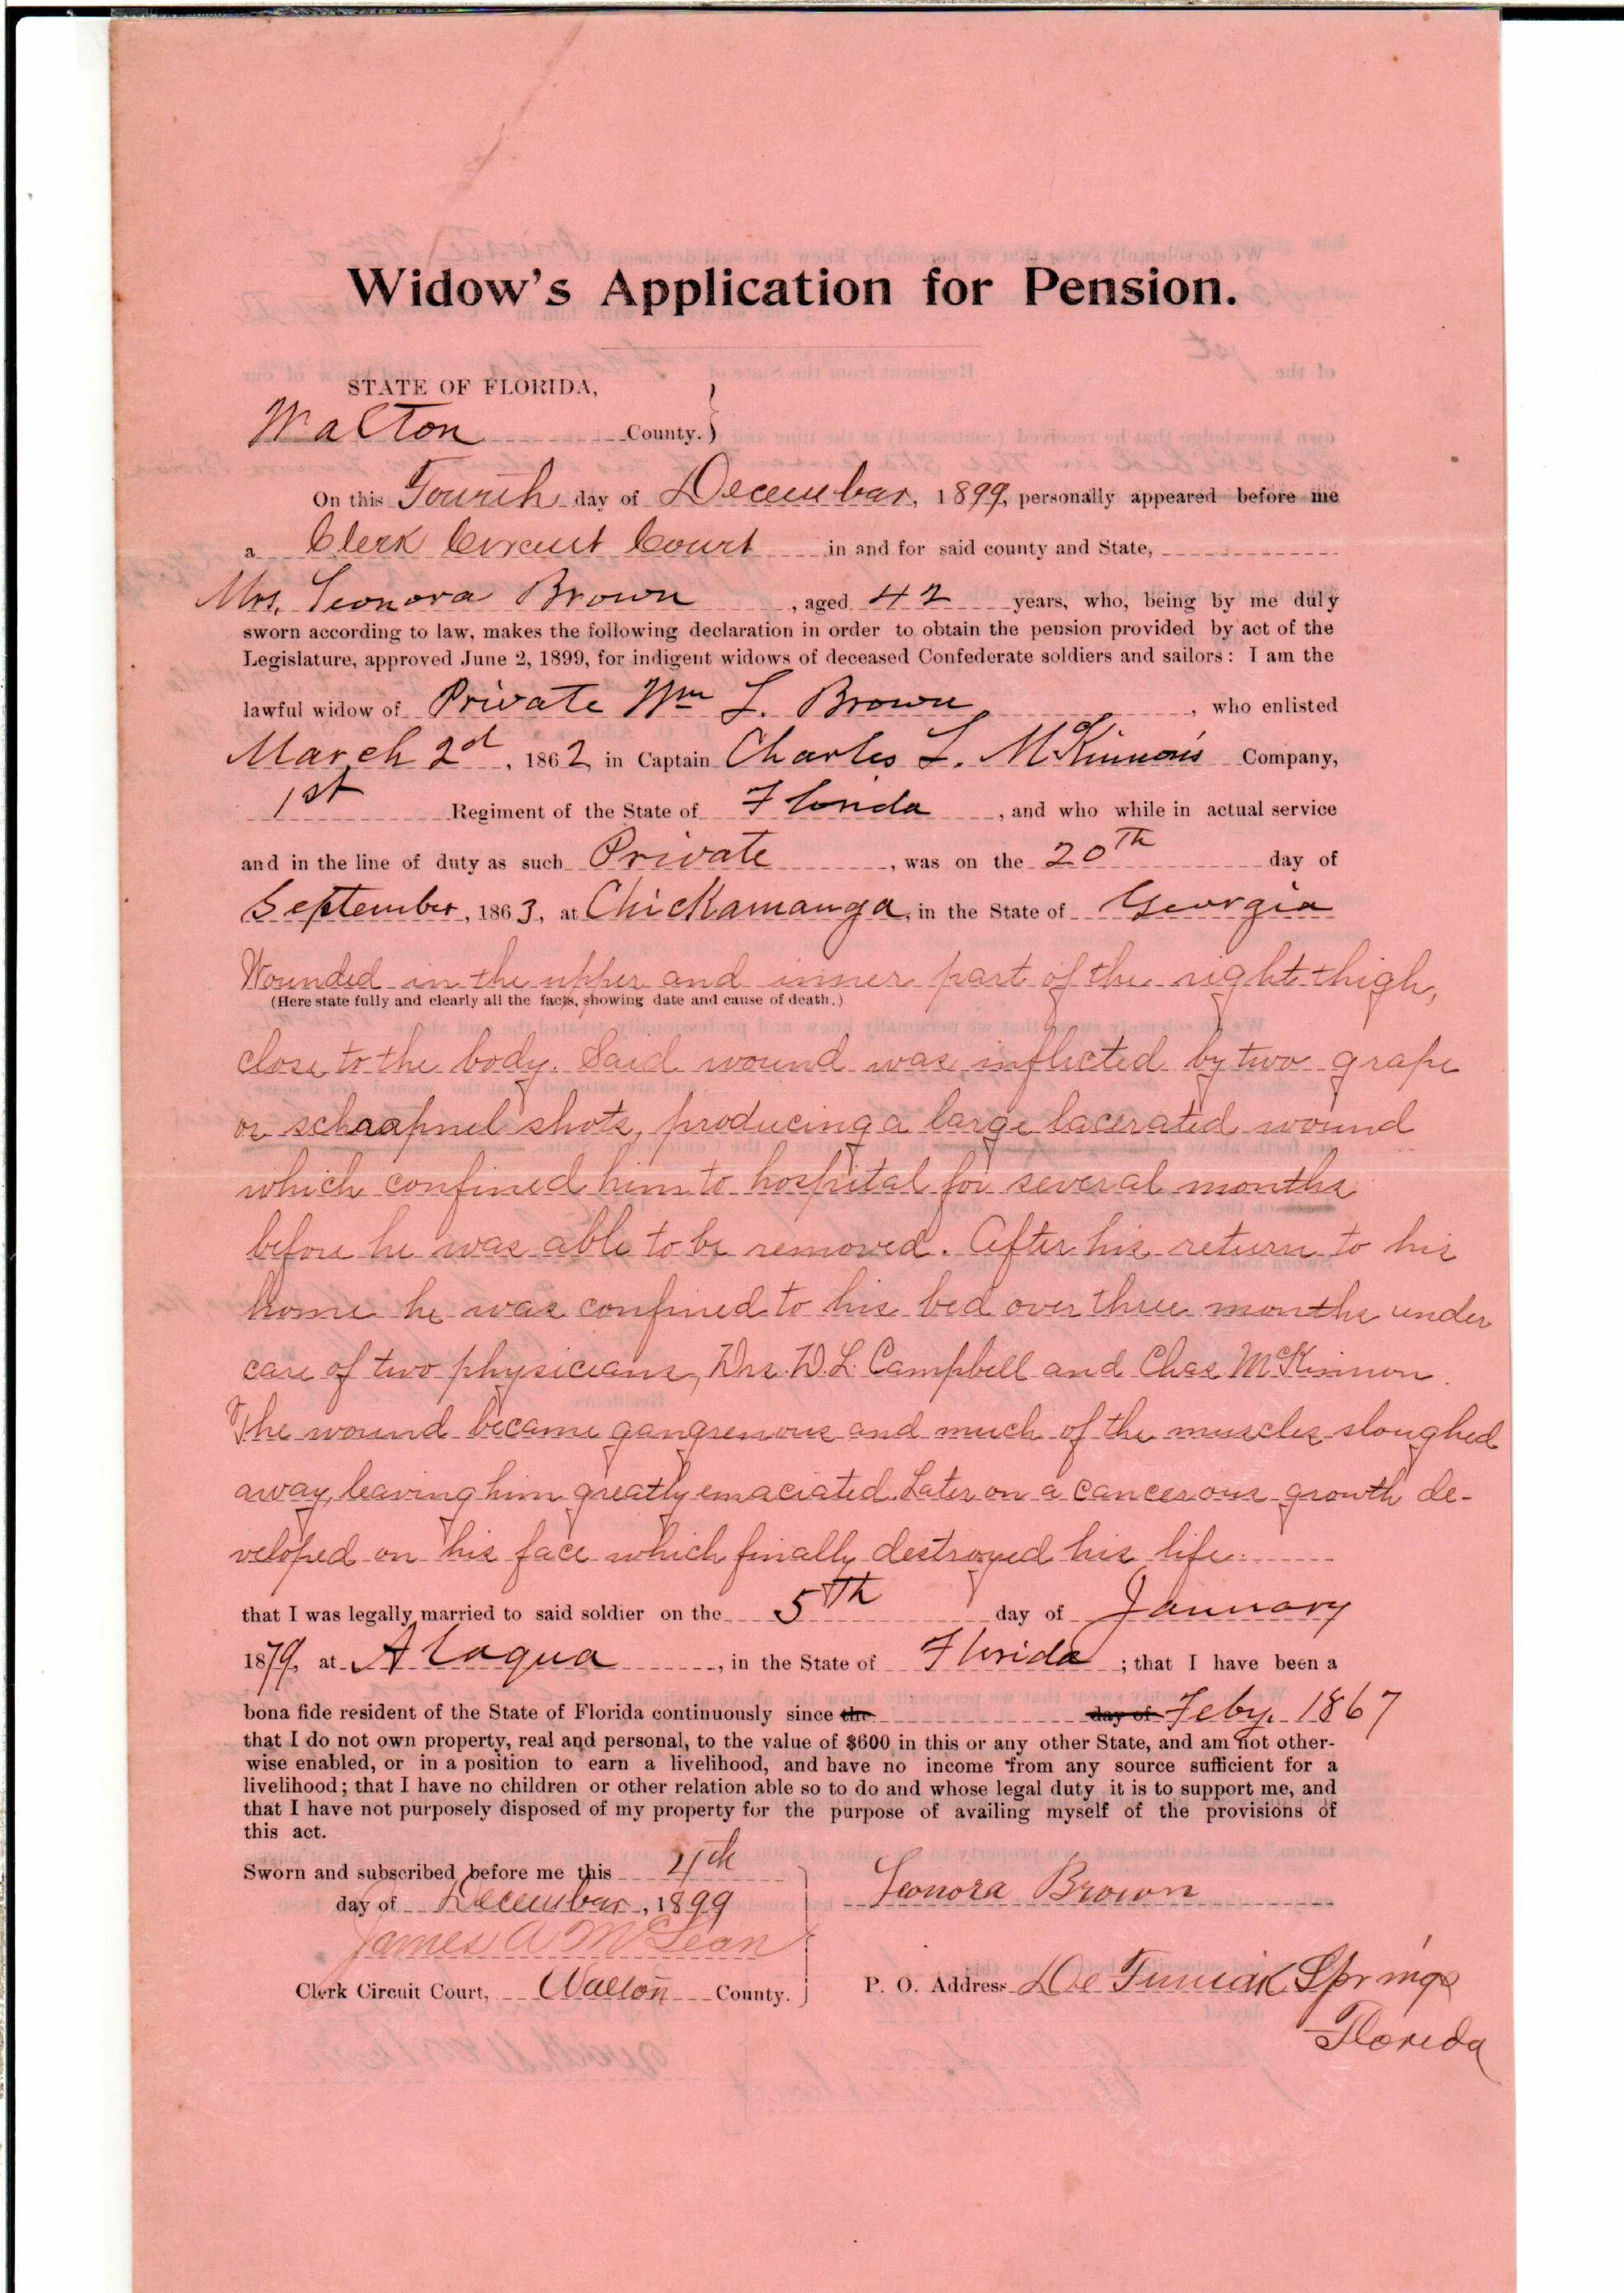 Widow's Application for Pension.
STATE OF FLORIDA,
Walton County.
On this Fourth day of December, 1899, personally appeared before me
a Clerk Circuit Court in and for said county and State,
Mrs. Leonora Brown, aged 42 years, who, being by me duly
sworn according to law, makes the following declaration in order to obtain the pension provided by act of the
Legislature, approved June 2, 1899, for indigent widows of deceased Confederate soldiers and sailors: I am the
lawful widow of Private Wm L. Brown, who enlisted
March 2d, 1862 in Captain Charles L. McKinnon's Company,
1st Regiment of the State of Florida, and who while in actual service
and in the line of duty as such Private, was on the 20th day of
September, 1863, at Chickamauga, in the State of Georgia
Wounded in the upper and inner part of the right thigh,
(Here state fully and clearly all the facts, showing date and cause of death.)
close to the body. Said wound was inflicted by two grape
or schrapnel shots, producing a large lacerated wound
which confined him to hospital for several months
before he was able to be removed. After his return to his
home he was confined to his bed over three months under
care of two physicians, Drs. D. L. Campbell and Chas McKinnon.
The wound became gangrenous and much of the muscles sloughed
away, leaving him greatly emaciated. Later on a cancerous growth de-
veloped on his face which finally destroyed his life.
that I was legally married to said soldier on the 5th day of January
1879, at Alaqua, in the State of Florida; that I have been a
bona fide resident of the State of Florida continuously since the day of Feby. 1867
that I do not own property, real and personal, to the value of $600 in this or any other State, and am not other-
wise enabled, or in a position to earn a livelihood, and have no income from any source sufficient for a
livelihood; that I have no children or other relation able so to do and whose legal duty it is to support me, and
that I have not purposely disposed of my property for the purpose of availing myself of the provisions of
this act.
Sworn and subscribed before me this 4th
day of December, 1899
Leonora Brown
James A McLean
Clerk Circuit Court, Walton County.
P. O. Address De Funiak Springs
Florida